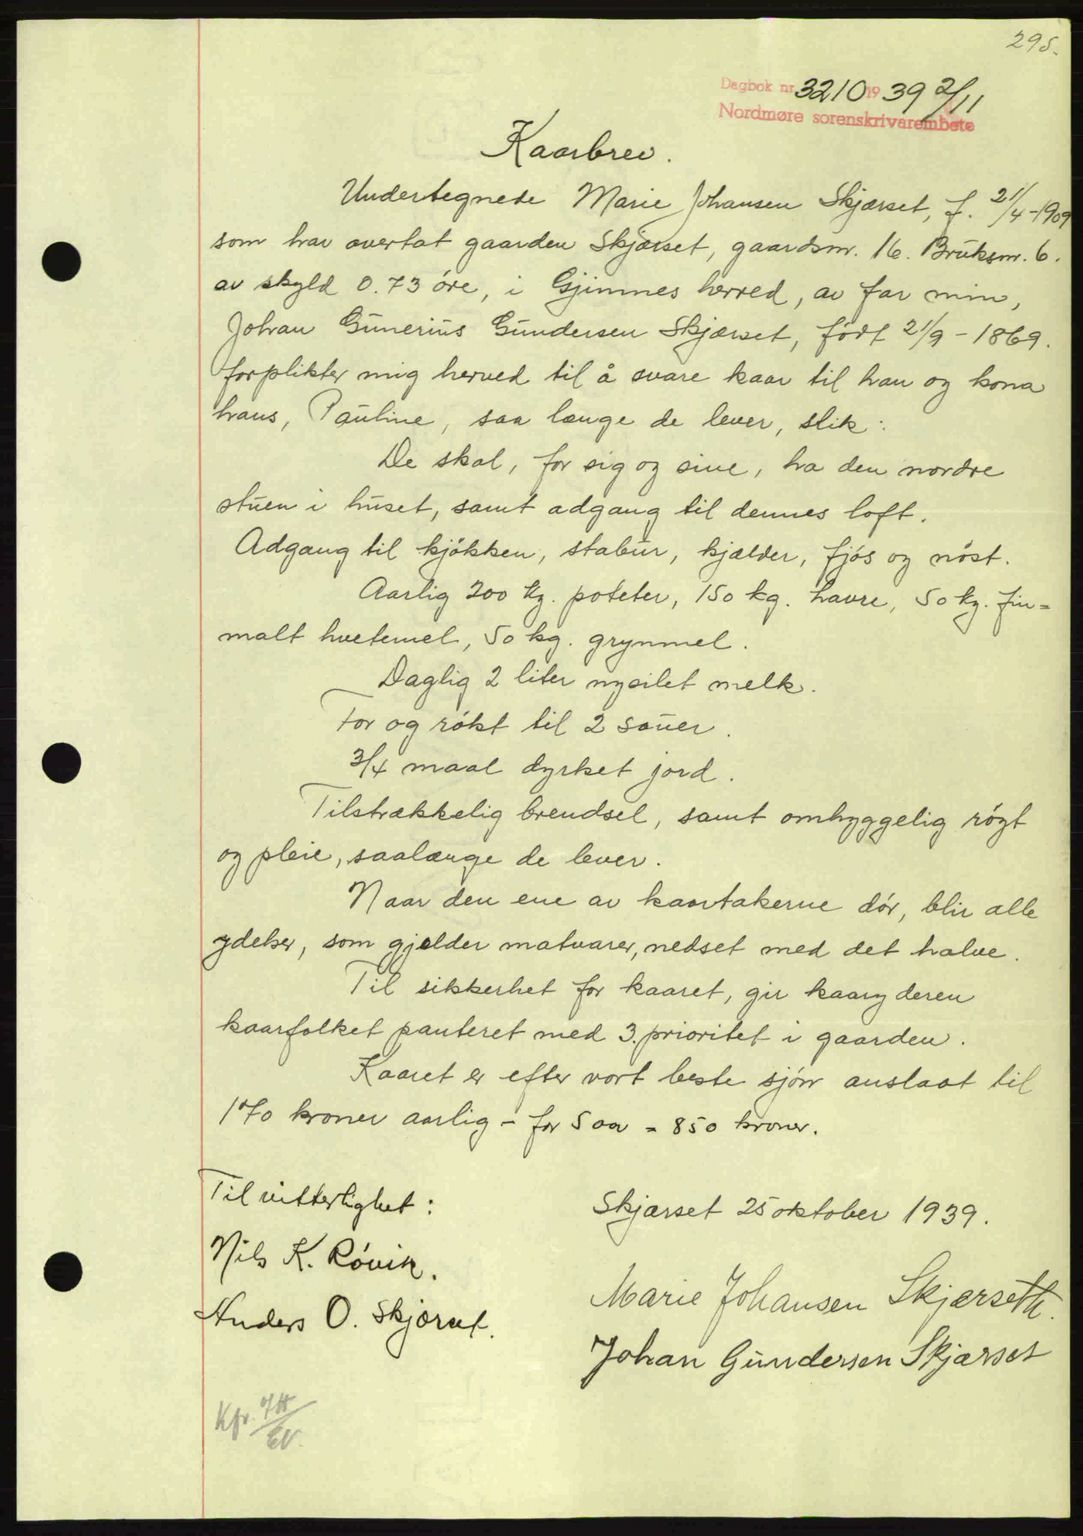 295.
Dagbok nr. 3210 19 39 2/11
Nordmøre sorenskrivarembete
Kaarbrev.
Undertegnede Marie Johansen Skjærset, f. 21/4-1909
som har overtat gaarden Skjærset, gaardsnr. 16. Bruksnr. 6.
av skyld 0.73 öre, i Gjemnes herred, av far min,
Johan Gunerius Gundersen Skjærset, født 21/9-1869.
forplikter mig herved til å svare kaar til han og kona
hans, Pauline, saa længe de lever, slik:
De skal, for sig og sine, ha den nordre
stuen i huset, samt adgang til dennes loft.
Adgang til kjökken, stabur, kjælder, fjös og nöst.
Aarlig 200 kg. poteter, 150 kg. havre, 50 kg. fin=
malt hvetemel, 50 kg. grynmel.
Daglig 2 liter nysilet melk.
For og rökt til 2 sauer.
3/4 maal dyrket jord.
Tilstrækkelig brendsel, samt omhyggelig rögt
og pleie, saalænge de lever.
Naar den ene av kaartakerne dör, blir alle
ydelser, som gjelder matvarer, nedset med det halve.
Til sikkerhet for kaaret, gir kaaryderen
kaarfolket panteret med 3. prioritet i gaarden.
Kaaret er efter vort beste sjönn anslaat til
170 kroner aarlig - for 5 aar = 850 kroner.
Til vitterlighet:
Skjærset 25 oktober 1939.
Nils K. Rövik.
Marie Johansen Skjærseth.
Anders O. Skjærset.
Johan Gundersen Skjærset
Kfr.